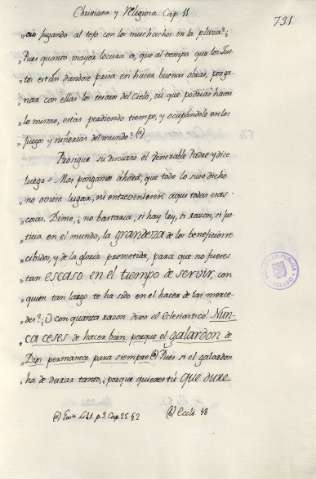 Christiana y Religiosa Cap. 11
731
jugando al tejo con los muchachos en la plaza?
Pues quanto mayor locura es, que al tiempo que los Jus-
tos estan dandose prisa en hacer buenas obras, por ga-
nar con ellas los tesoros del Cielo, tú que podrias hacer
lo mismo, estás perdiendo tiempo, y ocupandote en los
juegos y niñerias del mundo? (a)
Prosigue su discurso el Venerable Padre y dice
luego = Mas pongamos ahora, que todo lo suso dicho
no oviera lugar, ni entreviniesen aqui todas esas
cosas. Dime, ¿no bastara, si hay ley, si razon, si jus-
ticia en el mundo, la grandeza de los beneficios re-
cibidos, y de la gloria prometida, para que no fueses
tan escaso en el tiempo de servir, con
quien tan largo te ha sido en el hacer de las merce-
des? ¡O con quanta razon dixo el Eclesiastico! Nun-
ca ceses de hacer bien, porque el galardon de
Dios permanece para siempre (b) Pues si el galardon
ha de durar tanto, ¿porque quieres tú que dure
(a) Cap. 25. § 2
(b) Eccli. 18